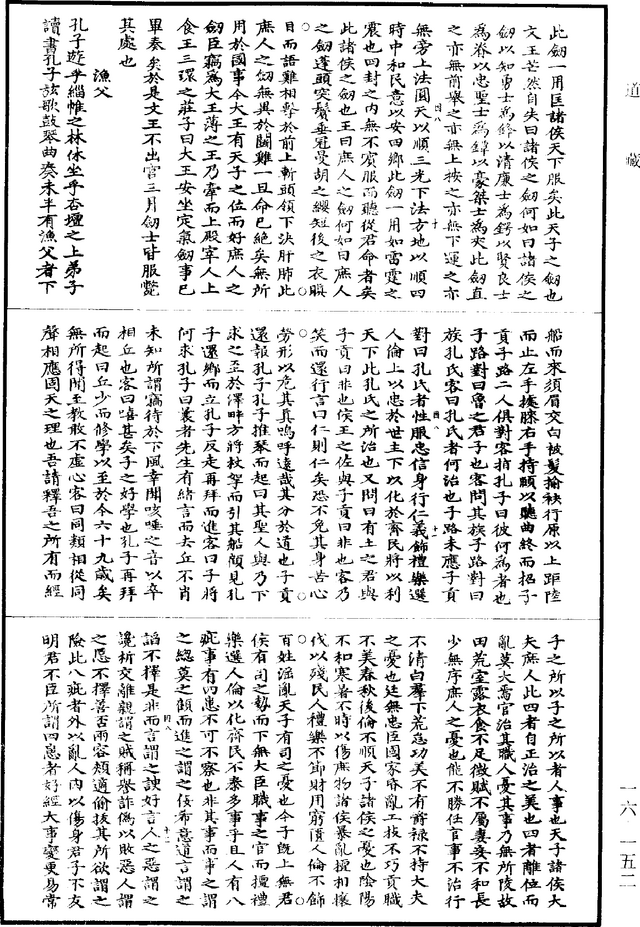 道藏
此劍一用匡諸侯天下服矣此天子之劍也
文王芒然自失曰諸侯之劍何如曰諸侯之
劍以知勇士為鋒以清廉士為鍔以賢良士
為脊以忠聖士為鐔以豪桀士為夾此劍直
之亦無前舉之亦無上按之亦無下運之亦
四八 十
無旁上法圓天以順三光下法方地以順四
時中和民意以安四鄉此劍一用如雷霆之
震也四封之內無不賓服而聽從君命者矣
此諸侯之劍也王曰庶人之劍何如曰庶人
之劍蓬頭突鬢垂冠曼胡之纓短後之衣瞋
目而語難相擊於前上斬頸領下決肝肺此
庶人之劍無異於鬭雞一旦命已絕矣無所
用於國事今大王有天子之位而好庶人之
劍臣竊為大王薄之王乃牽而上殿宰人上
食王三環之莊子曰大王安坐定氣劍事已
畢奏矣於是文王不出宮三月劍士皆服斃
其處也
漁父
孔子遊乎緇帷之林休坐乎杏壇之上弟子
讀書孔子絃歌鼓琴曲奏未半有漁父者下
船而來須眉交白被髮揄袂行原以上距陸
而止左手據膝右手持頤以聽曲終而招子
貢子路二人俱對客指孔子曰彼何為者也
子路對曰魯之君子也客問其族子路對曰
族孔氏客曰孔氏者何治也子路未應子貢
四八 十一
對曰孔氏者性服忠信身行仁義飾禮樂選
人倫上以忠於世主下以化於齊民將以利
天下此孔氏之所治也又問曰有土之君與
子貢曰非也侯王之佐與子貢曰非也客乃
笑而還行言曰仁則仁矣恐不免其身苦心
勞形以危其真嗚呼遠哉其分於道也子貢
還報孔子孔子推琴而起曰其聖人與乃下
求之至於澤畔方將杖拏而引其船顧見孔
子還鄉而立孔子反走再拜而進客曰子將
何求孔子曰曩者先生有緒言而去丘不肖
未知所謂竊待於下風幸聞咳唾之音以卒
相丘也客曰嘻甚矣子之好學也孔子再拜
而起曰丘少而修學以至於今六十九歲矣
無所得聞至教敢不虛心客曰同類相從同
聲相應固天之理也吾請釋吾之所有而經
子之所以子之所以者人事也天子諸侯大
夫庶人此四者自正治之美也四者離位而
亂莫大焉官治其職人憂其事乃無所陵故
田荒室露衣食不足徵賦不屬妻妾不和長
少無序庶人之憂也能不勝任官事不治行
不清白羣下荒怠功美不有爵祿不持大夫
之憂也廷無忠臣國家昏亂工技不巧貢職
不美春秋後倫不順天子諸侯之憂也陰陽
不和寒暑不時以傷庶物諸侯暴亂擅相攘
伐以殘民人禮樂不節財用窮匱人倫不飭
百姓淫亂天子有司之憂也今子既上無君
侯有司之勢而下無大臣職事之官而擅禮
樂選人倫以化齊民不泰多事乎且人有八
疵事有四患不可不察也非其事而事之謂
之總莫之顧而進之謂之佞希意道言謂之
四八 十二
諂不擇是非而言謂之諛好言人之惡謂之
讒析交離親謂之賊稱譽詐偽以敗惡人謂
之慝不擇善否兩容頰適偷拔其所欲謂之
險此八疵者外以亂人內以傷身君子不友
明君不臣所謂四患者好經大事變更易常
一六—一五二